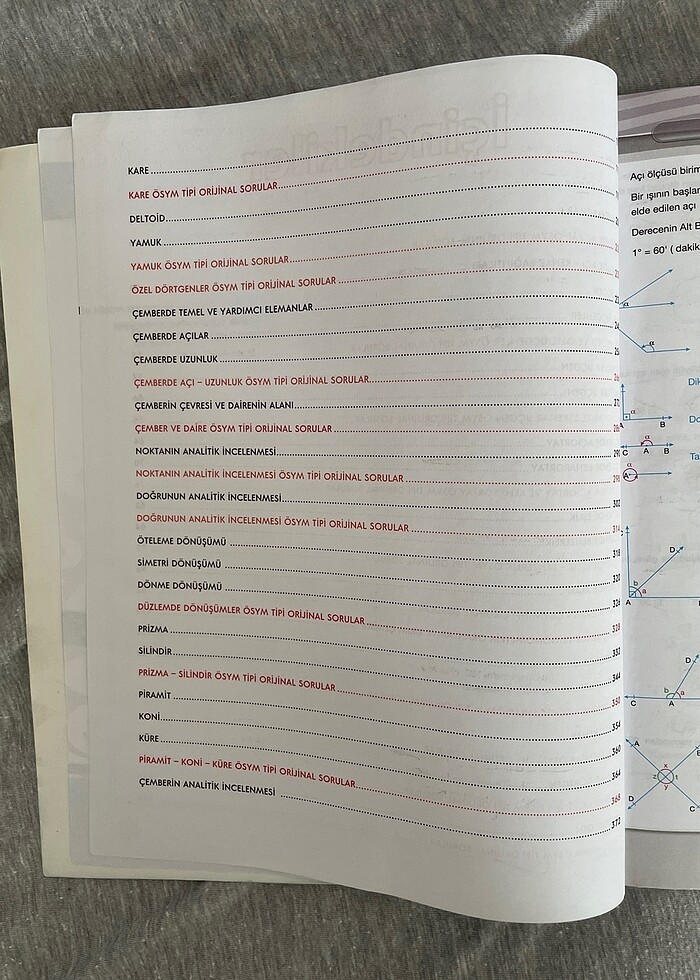 KARE
KARE ÖSYM TİPİ ORİJİNAL SORULAR
DELTOİD
YAMUK
YAMUK ÖSYM TİPİ ORİJİNAL SORULAR
ÖZEL DÖRTGENLER ÖSYM TİPİ ORİJİNAL SORULAR
ÇEMBERDE TEMEL VE YARDIMCI ELEMANLAR
ÇEMBERDE AÇILAR
ÇEMBERDE UZUNLUK
ÇEMBERDE AÇI – UZUNLUK ÖSYM TİPİ ORİJİNAL SORULAR
ÇEMBERİN ÇEVRESİ VE DAİRENİN ALANI
ÇEMBER VE DAİRE ÖSYM TİPİ ORİJİNAL SORULAR
NOKTANIN ANALİTİK İNCELENMESİ
NOKTANIN ANALİTİK İNCELENMESİ ÖSYM TİPİ ORİJİNAL SORULAR
DOĞRUNUN ANALİTİK İNCELENMESİ 302
DOĞRUNUN ANALİTİK İNCELENMESİ ÖSYM TİPİ ORİJİNAL SORULAR 314
ÖTELEME DÖNÜŞÜMÜ 318
SİMETRİ DÖNÜŞÜMÜ 320
DÖNME DÖNÜŞÜMÜ 326
DÜZLEMDE DÖNÜŞÜMLER ÖSYM TİPİ ORİJİNAL SORULAR 328
PRİZMA 332
SİLİNDİR 344
PRİZMA – SİLİNDİR ÖSYM TİPİ ORİJİNAL SORULAR 350
PİRAMİT 354
KONİ 360
KÜRE 364
PİRAMİT – KONİ – KÜRE ÖSYM TİPİ ORİJİNAL SORULAR 368
ÇEMBERİN ANALİTİK İNCELENMESİ 372
Açı ölçüsü birim
Bir ışının başlar
elde edilen açı
Derecenin Alt B
1° = 60' ( dakik
α
α
Dik
α
A B
Do
α
C A B
Ta
α
A
D
b
a
A
D
b a
C A
A
x
z t
y
D C